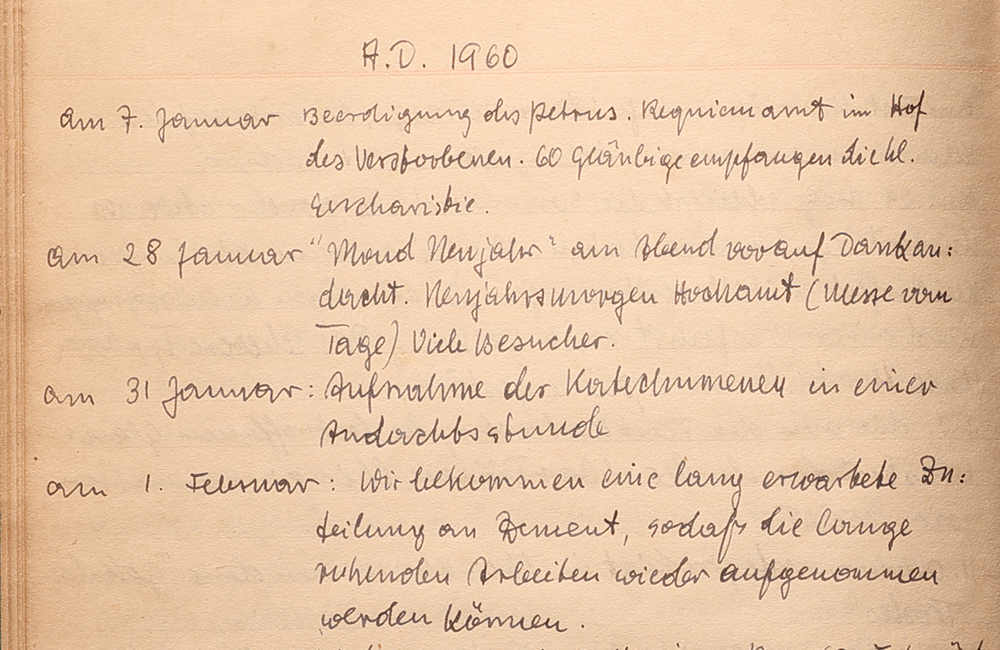 A.D. 1960
am 7. Januar Beerdigung des Petrus. Requiemamt im Hof
des Verstorbenen. 60 Gläubige empfangen die hl.
Eucharistie.
am 28 Januar "Mond Neujahr" am Abend vorauf Dankan:
dacht. Neujahrsmorgen Hochamt (Messe vom
Tage) Viele Besucher.
am 31 Januar: Aufnahme der Katechumenen in einer
Andachtsstunde
am 1. Februar: Wir bekommen eine lang erwartete Zu:
teilung an Zement, sodaß die lange
ruhenden Arbeiten wieder aufgenommen
werden können.